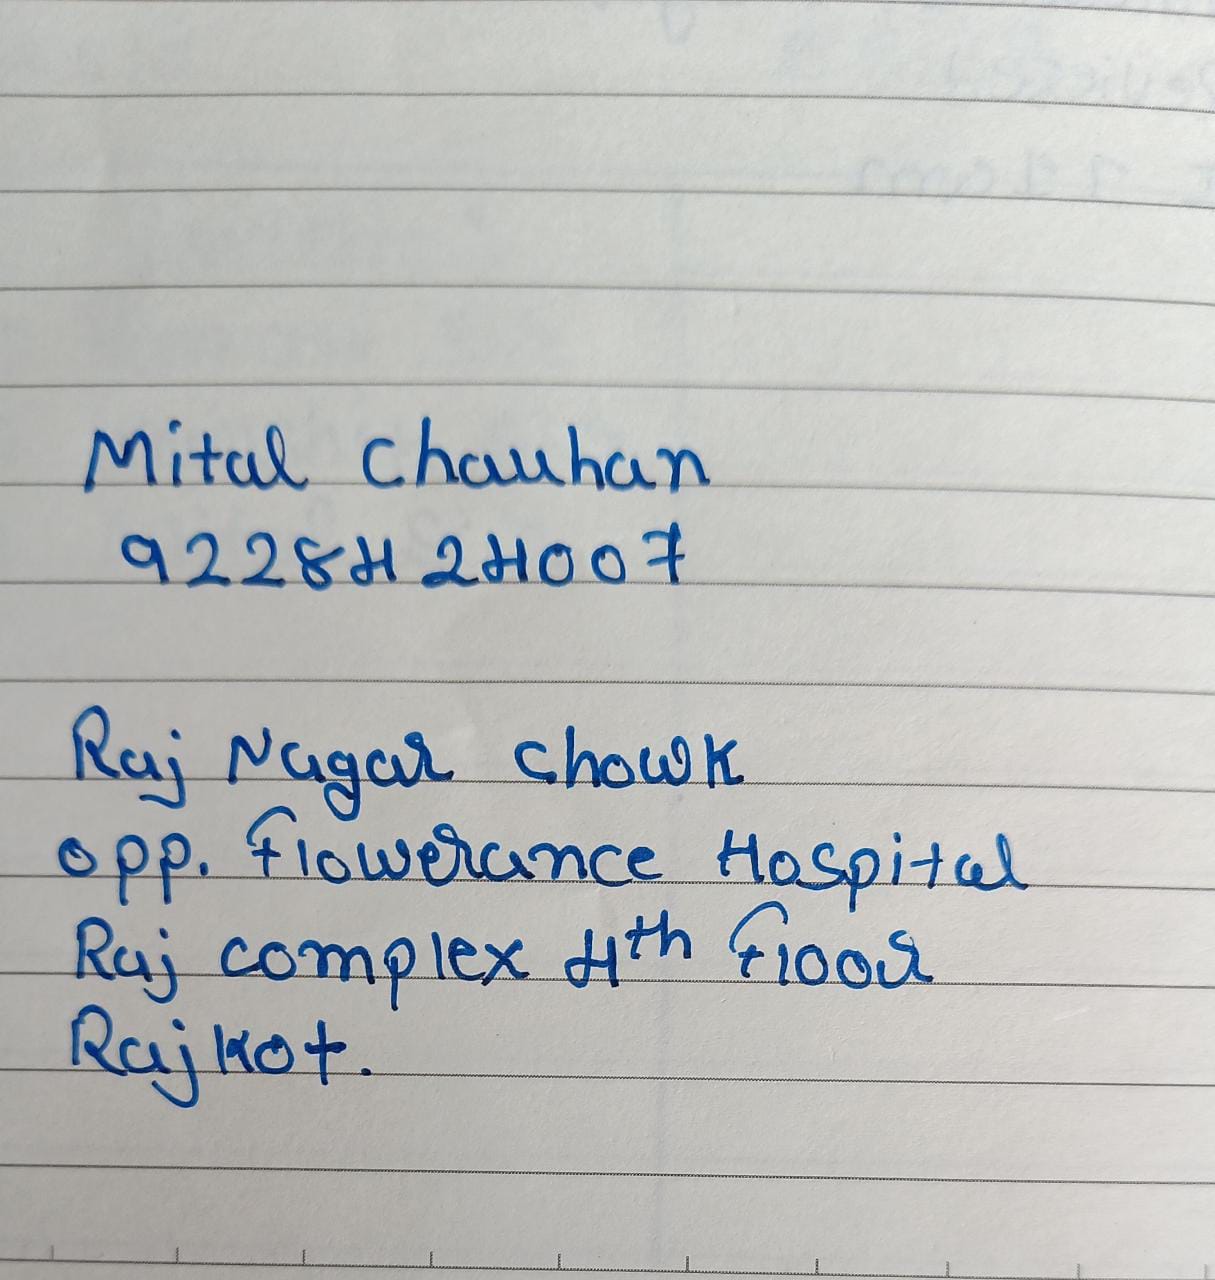 Mital Chauhan
9228424007
Raj Nagar chowk
opp. Flowerance Hospital
Raj complex 4th Floor
Rajkot.